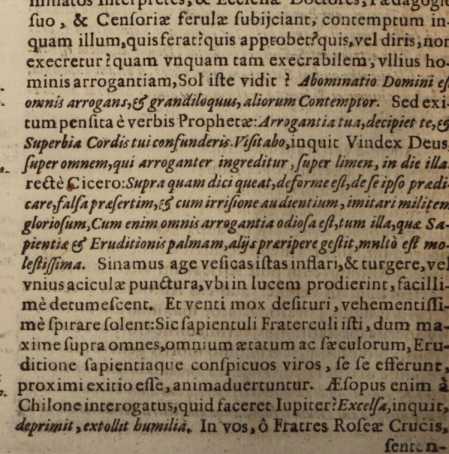 minatos Interpretes, & Ecclesiæ Doctores, Pædagogic
suo, & Censoriæ ferulæ subijciant, contemptum in-
quam illum, quis ferat? quis approbet? quis, vel diris, non
execretur? quam vnquam tam execrabilem, vllius ho-
minis arrogantiam, Sol iste vidit? Abominatio Domini es
omnis arrogans, & grandiloquus, aliorum Contemptor. Sed exi-
tum pensita è verbis Prophetæ: Arrogantia tua, decipiet te, &
Superbia Cordis tui confunderis. Visitabo, inquit Vindex Deus,
super omnem, qui arroganter ingreditur, super limen, in die illa.
rectè Cicero: Supra quam dici queat, deforme est, de se ipso prædi-
care, falsa præsertim, & cum irrisione audientium, imitari militem
gloriosum, Cum enim omnis arrogantia odiosa est, tum illa, quæ Sa-
pientiæ & Eruditionis palmam, alijs præripere gestit, multò est mo-
lestissima. Sinamus age vesicas istas inflari, & turgere, vel
vnius aciculæ punctura, vbi in lucem prodierint, facilli-
mè detumescent. Et venti mox desituri, vehementissi-
mè spirare solent: Sic sapientuli Fraterculi isti, dum ma-
xime supra omnes, omnium ætatum ac sæculorum, Eru-
ditione sapientiaque conspicuos viros, se se efferunt,
proximi exitio esse, animaduertuntur. Æsopus enim à
Chilone interogatus, quid faceret Iupiter? Excelsa, inquit,
deprimit, extollit humilia. In vos, ô Fratres Roseæ Crucis,
senten-